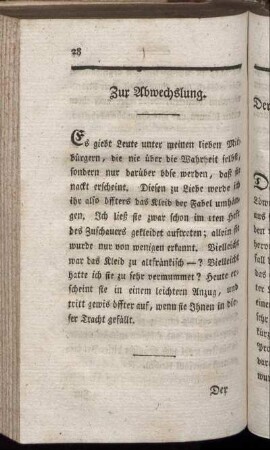 28
Zur Abwechslung.
Es giebt Leute unter meinen lieben Mit-
bürgern, die nie über die Wahrheit selbst,
sondern nur darüber böse werden, daß sie
nackt erscheine. Diesen zu Liebe werde ich
ihr also öffters das Kleid der Fabel umhän-
gen. Ich ließ sie zwar schon im 1ten Heft
des Zuschauers gekleidet auftreten; allein sie
wurde nur von wenigen erkannt. Vielleicht
war das Kleid zu altfränkisch —? Vielleicht
hatte ich sie zu sehr vermummet? Heute er-
scheint sie in einem leichtern Anzug, und
tritt gewis öffter auf, wenn sie Ihnen in die-
ser Tracht gefällt.
Der